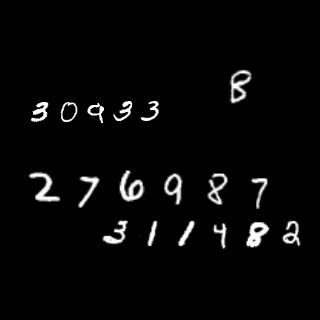 8
30933
276987
311482